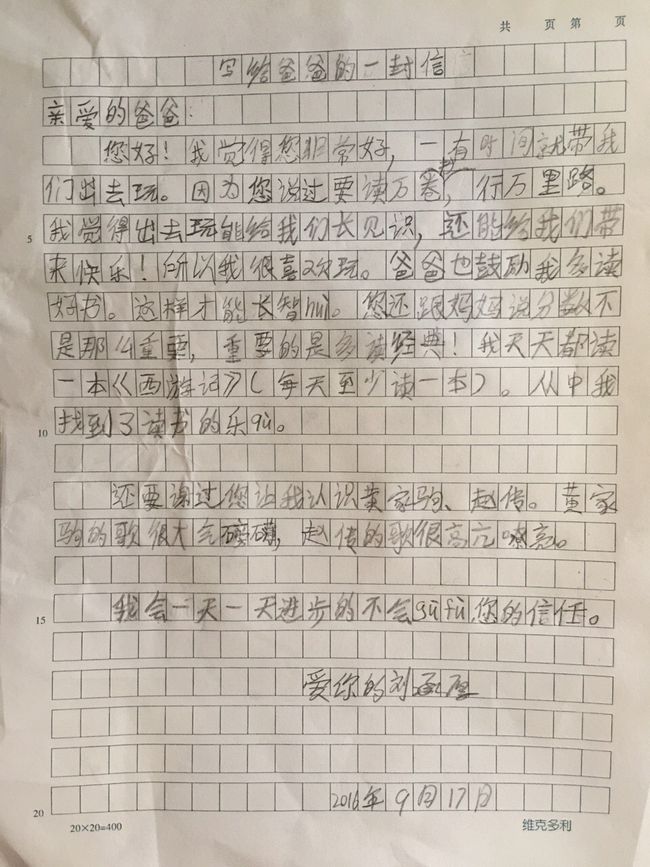 共 页 第 页
写给爸爸的一封信
亲爱的爸爸：
您好！我觉得您非常好，一有时间就带我
们出去玩。因为您说过要读万卷书，行万里路。
5 我觉得出去玩能给我们长见识，还能给我们带
来快乐！所以我很喜欢玩。爸爸也鼓励我多读
好书。这样才能长智huì。您还跟妈妈说分数不
是那么重要，重要的是多读经典！我天天都读
一本《西游记》（每天至少读一本）。从中我
10 找到了读书的乐qù。
还要谢过您让我认识黄家驹、赵传。黄家
驹的歌很大气磅礴，赵传的歌很高亢嘹亮。
15 我会一天一天进步的不会gūfù您的信任。
爱你的刘
2016年9月17日
20
20×20=400 维克多利